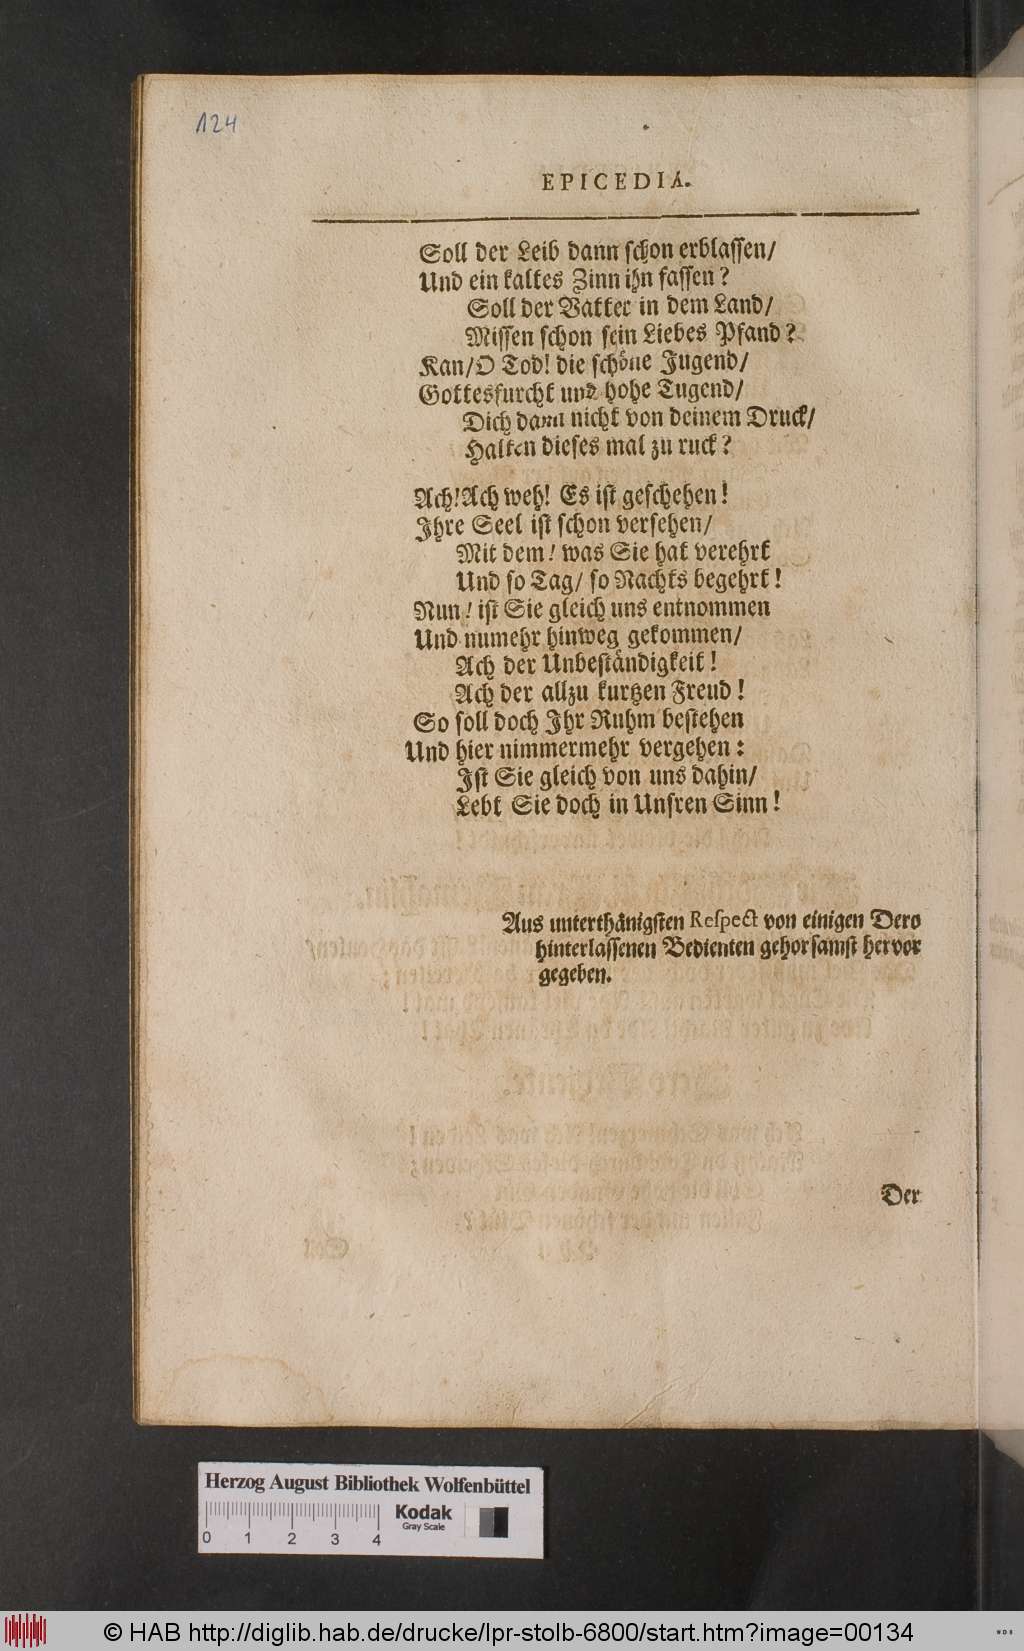 124
EPICEDIA.
Soll der Leib dann schon erblassen/
Und ein kaltes Zinn ihn fassen?
Soll der Vatter in dem Land/
Missen schon sein Liebes Pfand?
Kan/O Tod! die schöne Jugend/
Gottesfurcht und hohe Tugend/
Dich dann nicht von deinem Druck/
Halten dieses mal zu ruck?
Ach! Ach weh! Es ist geschehen!
Ihre Seel ist schon versehen/
Mit dem! was Sie hat verehrt
Und so Tag/ so Nachts begehrt!
Nun! ist Sie gleich uns entnommen
Und numehr hinweg gekommen/
Ach der Unbeständigkeit!
Ach der allzu kurtzen Freud!
So soll doch Ihr Ruhm bestehen
Und hier nimmermehr vergehen:
Ist Sie gleich von uns dahin/
Lebt Sie doch in Unsren Sinn!
Aus unterthänigsten Respect von einigen Dero
hinterlassenen Bedienten gehorsamst hervor
gegeben.
Der
Herzog August Bibliothek Wolfenbüttel
0 1 2 3 4
Kodak
Gray Scale
© HAB http://diglib.hab.de/drucke/lpr-stolb-6800/start.htm?image=00134